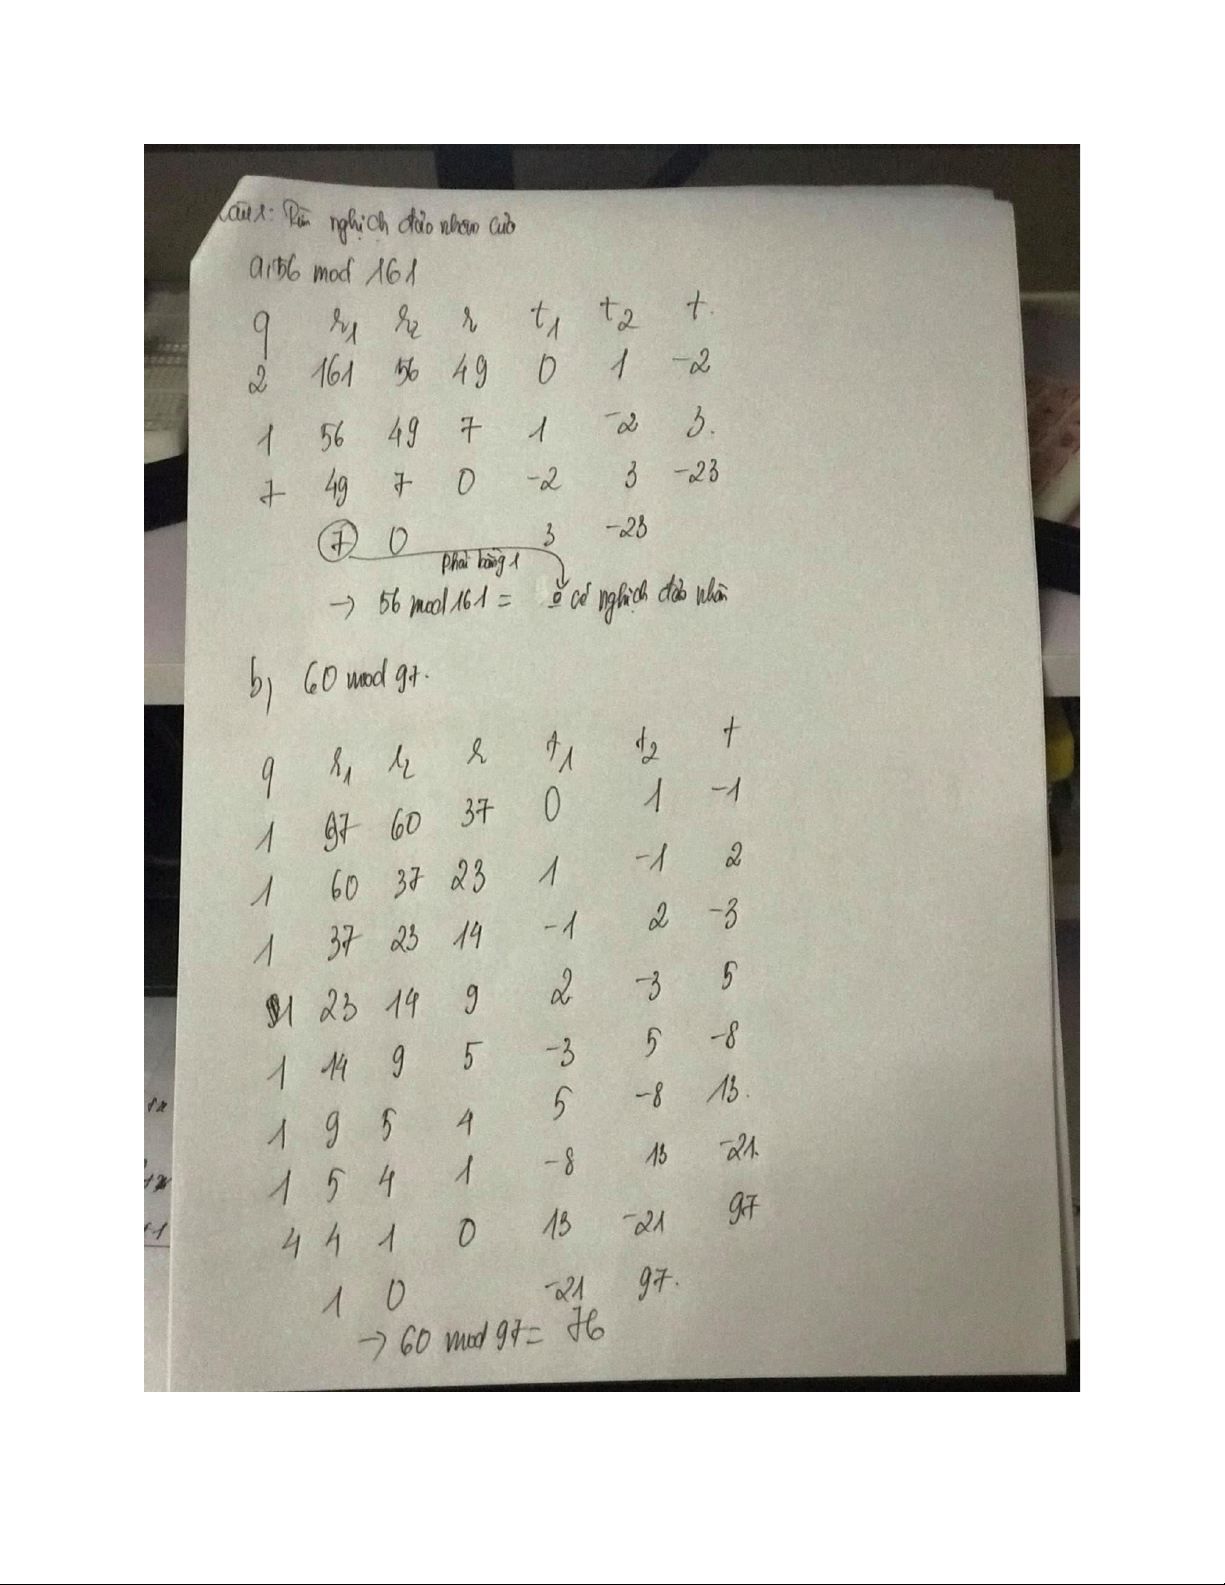 Câu 1: Tìm nghịch đảo nhân của
a, 56 mod 161
q r1 r2 r t1 t2 t.
2 161 56 49 0 1 -2
1 56 49 7 1 -2 3.
7 49 7 0 -2 3 -23
7 0 3 -23
phải bằng 1
→ 56 mod 161 = có nghịch đảo nhân
b, 60 mod 97.
q r1 r2 r t1 t2 t
1 97 60 37 0 1 -1
1 60 37 23 1 -1 2
1 37 23 14 -1 2 -3
1 23 14 9 2 -3 5
1 14 9 5 -3 5 -8
1 9 5 4 5 -8 13.
1 5 4 1 -8 13 -21
4 4 1 0 13 -21 97
1 0 -21 97.
→ 60 mod 97 = 76